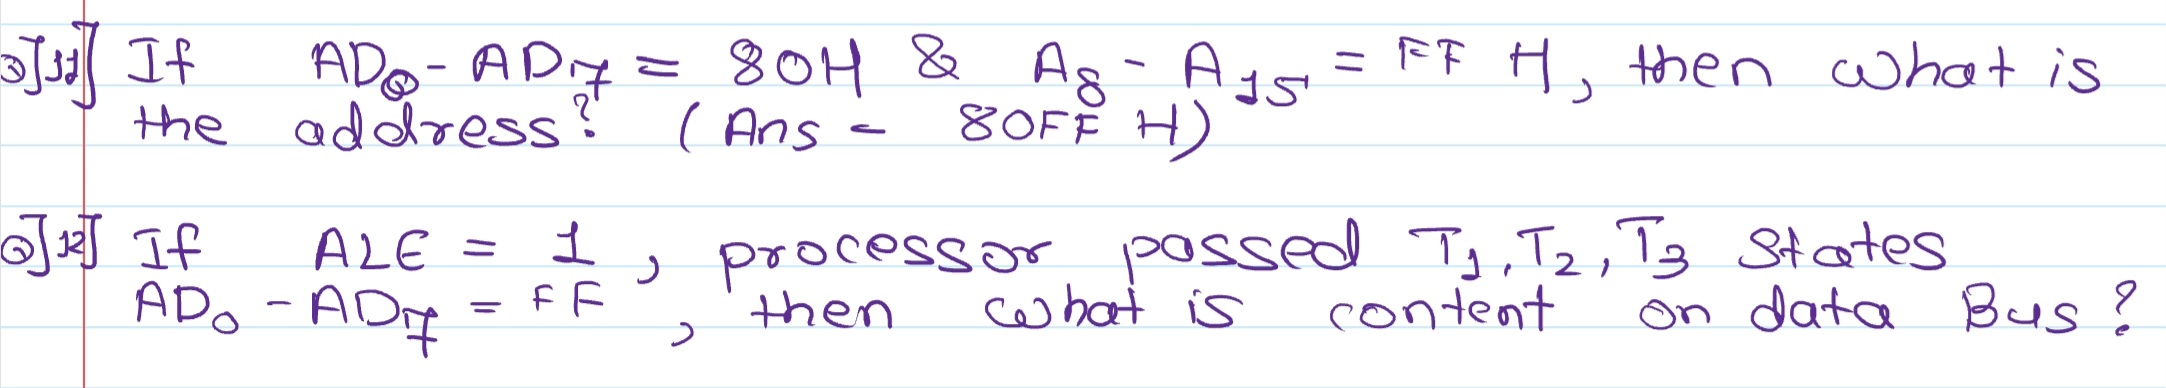 Q]11] If AD0 - AD7 = 80H & A8 - A15 = FF H, then what is
the address? (Ans - 80FF H)
Q]12] If ALE = 1, processor passed T1, T2, T3 States
AD0 - AD7 = FF, then what is content on data Bus?